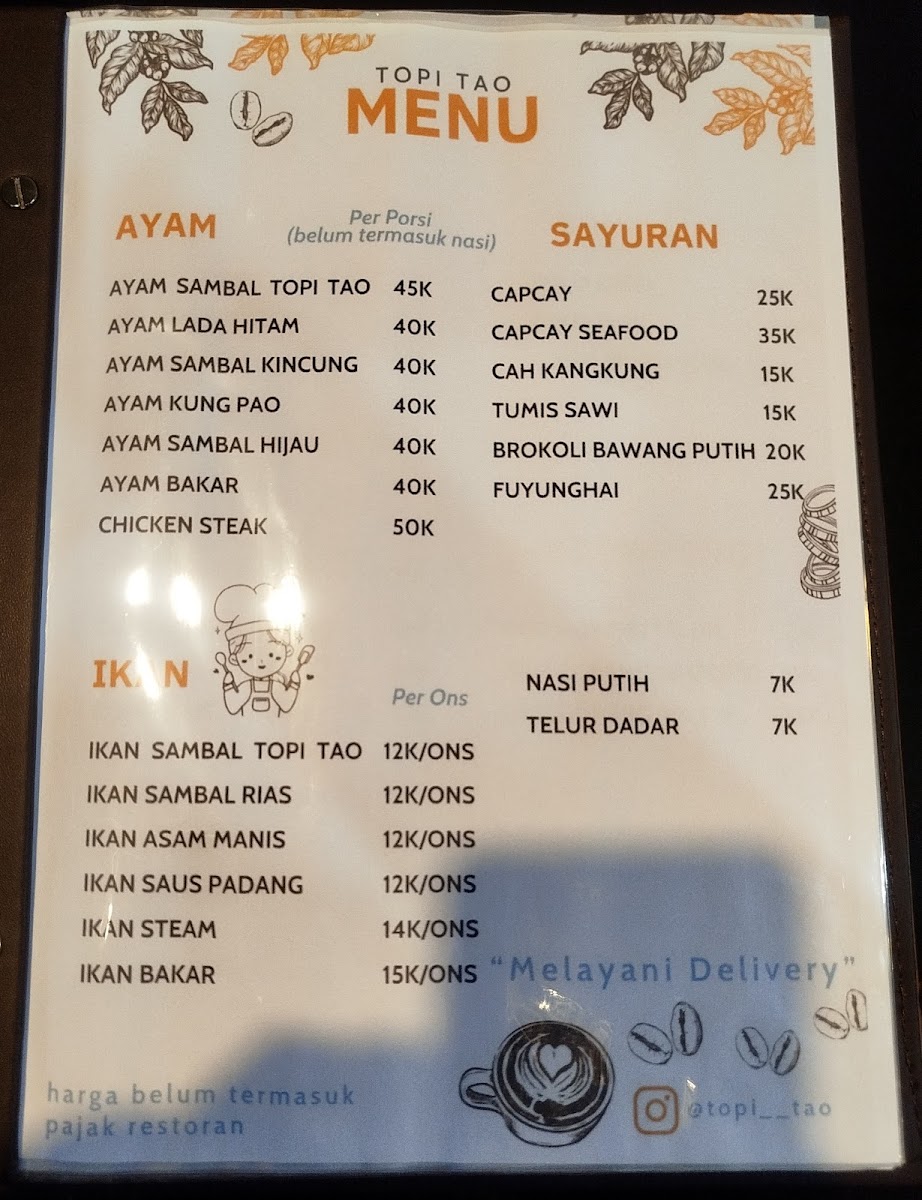 TOPI TAO
MENU
AYAM
Per Porsi
(belum termasuk nasi)
AYAM SAMBAL TOPI TAO 45K
AYAM LADA HITAM 40K
AYAM SAMBAL KINCUNG 40K
AYAM KUNG PAO 40K
AYAM SAMBAL HIJAU 40K
AYAM BAKAR 40K
CHICKEN STEAK 50K
SAYURAN
CAPCAY 25K
CAPCAY SEAFOOD 35K
CAH KANGKUNG 15K
TUMIS SAWI 15K
BROKOLI BAWANG PUTIH 20K
FUYUNGHAI 25K
IKAN
Per Ons
IKAN SAMBAL TOPI TAO 12K/ONS
IKAN SAMBAL RIAS 12K/ONS
IKAN ASAM MANIS 12K/ONS
IKAN SAUS PADANG 12K/ONS
IKAN STEAM 14K/ONS
IKAN BAKAR 15K/ONS
NASI PUTIH 7K
TELUR DADAR 7K
"Melayani Delivery"
harga belum termasuk
pajak restoran
@topi__tao